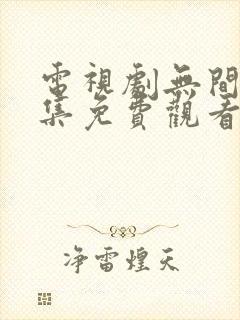 電視劇無間
集免費觀看
净雷煌天